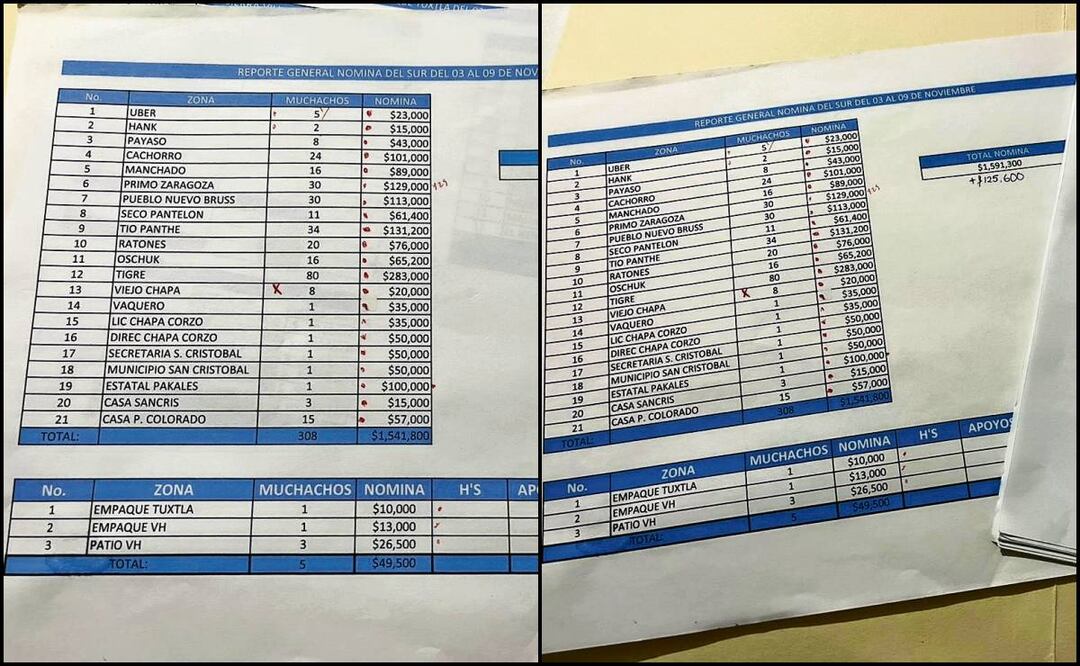 REPORTE GENERAL NOMINA DEL SUR DEL 03 AL 09 DE NOV
No. ZONA MUCHACHOS NOMINA
1 UBER 5 $23,000
2 HANK 2 $15,000
3 PAYASO 8 $43,000
4 CACHORRO 24 $101,000
5 MANCHADO 16 $89,000
6 PRIMO ZARAGOZA 30 $129,000
7 PUEBLO NUEVO BRUSS 30 $113,000
8 SECO PANTELON 11 $61,400
9 TIO PANTHE 34 $131,200
10 RATONES 20 $76,000
11 OSCHUK 16 $65,200
12 TIGRE 80 $283,000
13 VIEJO CHAPA X 8 $20,000
14 VAQUERO 1 $35,000
15 LIC CHAPA CORZO 1 $35,000
16 DIREC CHAPA CORZO 1 $50,000
17 SECRETARIA S. CRISTOBAL 1 $50,000
18 MUNICIPIO SAN CRISTOBAL 1 $50,000
19 ESTATAL PAKALES 1 $100,000
20 CASA SANCRIS 3 $15,000
21 CASA P. COLORADO 15 $57,000
TOTAL: 308 $1,541,800
No. ZONA MUCHACHOS NOMINA H'S AP
1 EMPAQUE TUXTLA 1 $10,000
2 EMPAQUE VH 1 $13,000
3 PATIO VH 3 $26,500
TOTAL: 5 $49,500
REPORTE GENERAL NOMINA DEL SUR DEL 03 AL 09 DE NOVIEMBRE
No. ZONA MUCHACHOS NOMINA
1 UBER 5 $23,000
2 HANK 2 $15,000
3 PAYASO 8 $43,000
4 CACHORRO 24 $101,000
5 MANCHADO 16 $89,000
6 PRIMO ZARAGOZA 30 $129,000
7 PUEBLO NUEVO BRUSS 30 $113,000
8 SECO PANTELON 11 $61,400
9 TIO PANTHE 34 $131,200
10 RATONES 20 $76,000
11 OSCHUK 16 $65,200
12 TIGRE 80 $283,000
13 VIEJO CHAPA X 8 $20,000
14 VAQUERO 1 $35,000
15 LIC CHAPA CORZO 1 $35,000
16 DIREC CHAPA CORZO 1 $50,000
17 SECRETARIA S. CRISTOBAL 1 $50,000
18 MUNICIPIO SAN CRISTOBAL 1 $50,000
19 ESTATAL PAKALES 1 $100,000
20 CASA SANCRIS 3 $15,000
21 CASA P. COLORADO 15 $57,000
TOTAL: 308 $1,541,800
TOTAL NOMINA
$1,591,300
+$125.600
No. ZONA MUCHACHOS NOMINA H'S APOYOS
1 EMPAQUE TUXTLA 1 $10,000
2 EMPAQUE VH 1 $13,000
3 PATIO VH 3 $26,500
TOTAL: 5 $49,500